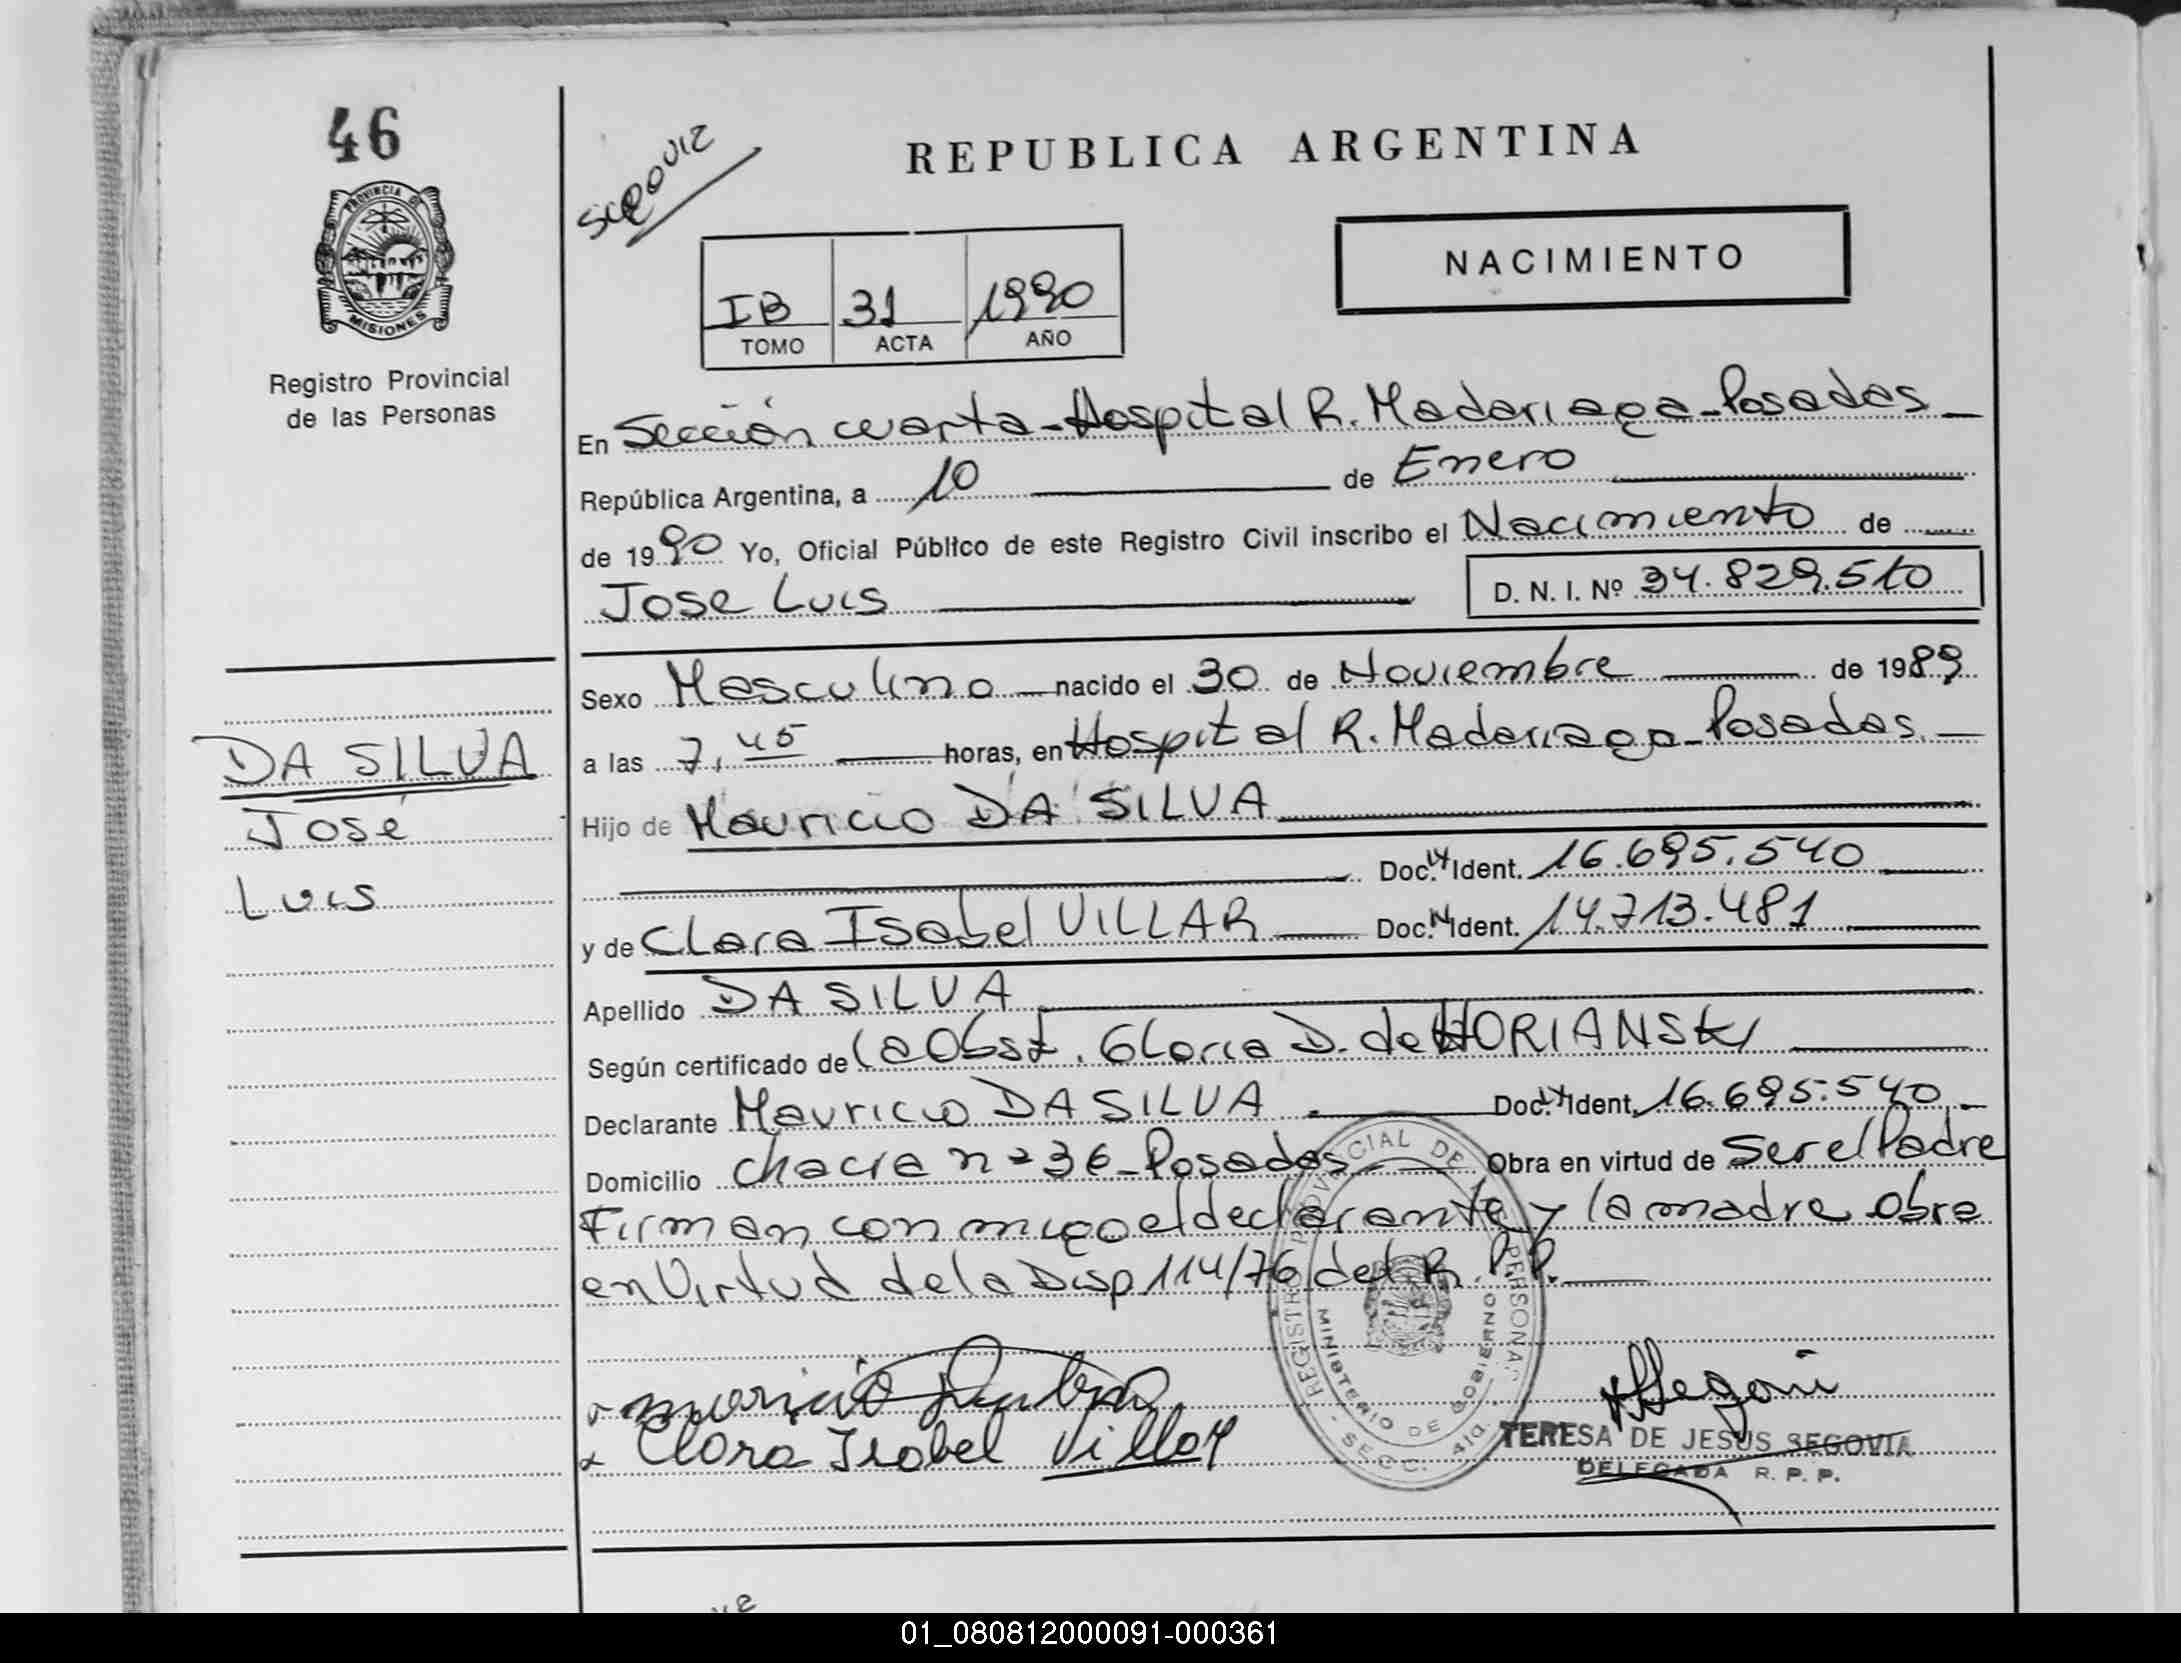 46
PROVINCIA DE
MISIONES
Registro Provincial
de las Personas
REPUBLICA ARGENTINA
NACIMIENTO
IB 31 1990
TOMO ACTA AÑO
En Sección cuarta - Hospital R. Madariaga - Posadas
República Argentina, a 10 de Enero
de 1990 Yo, Oficial Público de este Registro Civil inscribo el Nacimiento de
Jose Luis D. N. I. Nº 34.829.510
Sexo Masculino nacido el 30 de Noviembre de 1989
a las 7,45 horas, en Hospital R. Madariaga - Posadas
Hijo de Mauricio DA SILVA
Doc. Ident. 16.695.540
y de Clara Isabel VILLAR Doc. Ident. 14.713.481
Apellido DA SILVA
Según certificado de la Obst. Gloria D. de HORIANSKI
Declarante Mauricio DA SILVA Doc. Ident. 16.695.540
Domicilio chacra nº 36 - Posadas Obra en virtud de ser el Padre
Firman conmigo el declarante y la madre obra
en Virtud de la Disp 114/76 del R.P.P.
DA SILVA
José
Luis
Clara Isabel Villar
REGISTRO PROVINCIAL DE PERSONAS
MINISTERIO DE GOBIERNO
SECC. 4ta.
TERESA DE JESUS SEGOVIA
DELEGADA R. P. P.
01_080812000091-000361